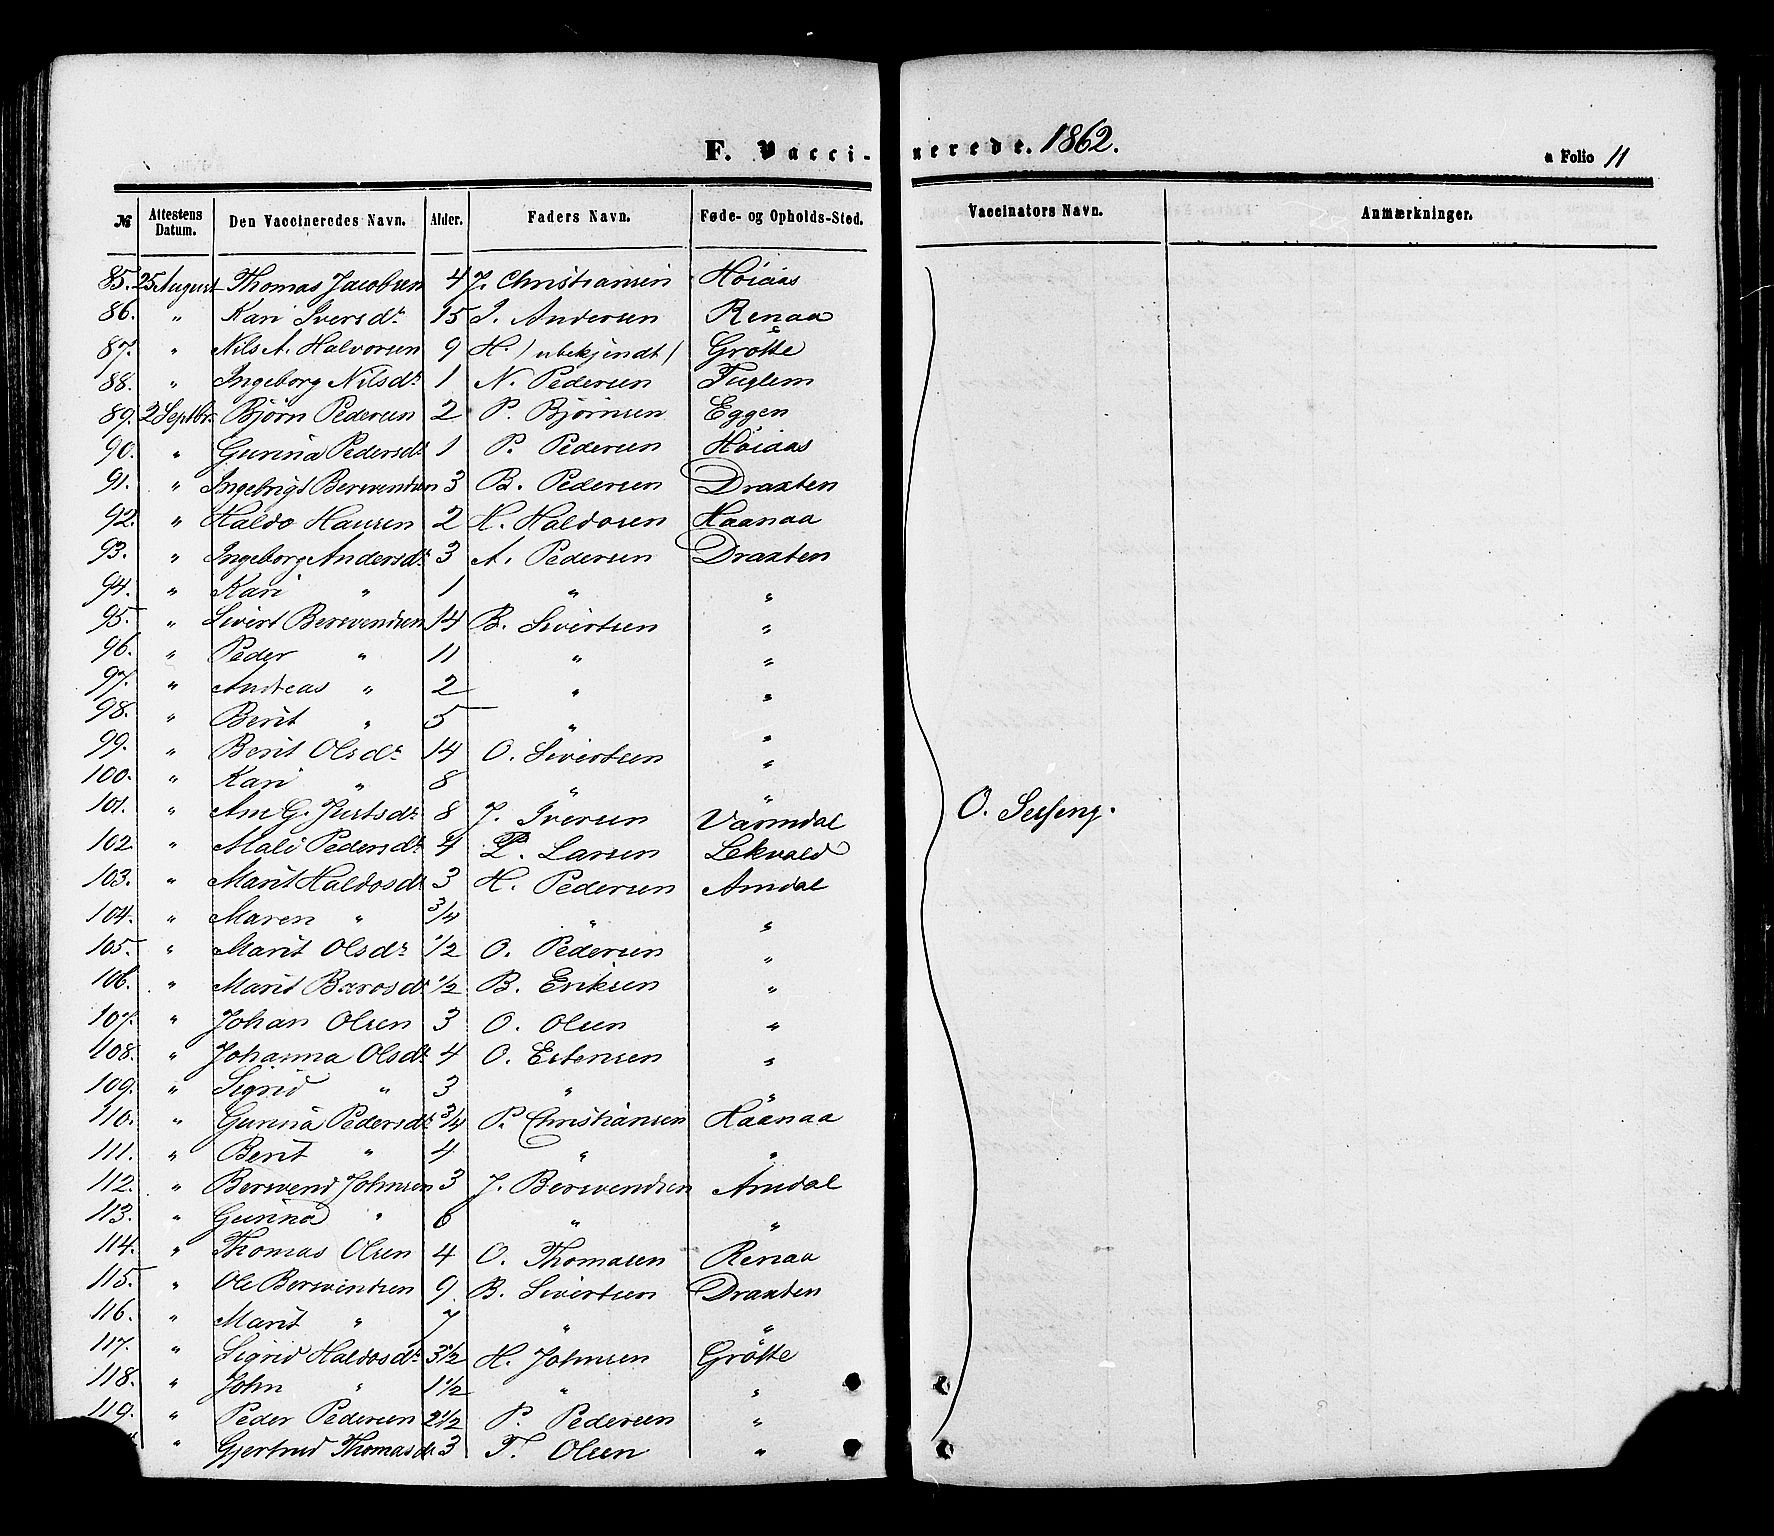 F. Vaccinerede. 1862.
a Folio 11
№ Attestens Datum. Den Vaccineredes Navn. Alder. Faders Navn. Føde- og Opholds-Sted. Vaccinators Navn. Anmærkninger.
85. 25 August Thomas Jacobsen 4 J. Christiansen Höiaas
86. " Kari Iversdr 15 I. Andersen Renaa
87. " Nils A. Halvorsen 9 H. / ubekjendt / Grötte
88. " Ingeborg Nilsdr 1 N. Pedersen Fuglem
89. 2 Septbr. Bjørn Pedersen 2 P. Bjørnsen Eggen
90. " Gurina Pedersdr 1 P. Pedersen Höiaas
91. " Ingebrigt Berevendsen 3 B. Pedersen Draxten
92. " Haldo Hansen 2 H. Haldosen Haanaa
93. " Ingeborg Andersdr 3 A. Pedersen Draxten
94. " Kari " 1 " "
95. " Sivert Berevendsen 14 B. Sivertsen "
96. " Peder " 11 " "
97. " Andreas " 2 " "
98. " Berit " 5 " "
99. " Berit Olsdr 14 O. Sivertsen "
100. " Kari " 8 " "
101. " Ane G. Justsdr 8 J. Iversen Varmdal
102. " Mali Pedersdr 4 P. Larsen Lekvold
103. " Marit Haldosdr 3 H. Pedersen Amdal
104. " Maren " 3/4 " "
105. " Marit Olsdr 1/2 O. Pedersen "
106. " Marit Baarosdr 1/2 B. Eriksen "
107. " Johan Olsen 3 O. Olsen "
108. " Johanna Olsdr 4 O. Estensen "
109. " Sigrid " 3 " "
110. " Gurina Pedersdr 3/4 P. Christiansen Haanaa
111. " Berit " 4 " "
112. " Berevend Johnsen 3 J. Berevendsen Amdal
113. " Gurina " 6 " "
114. " Thomas Olsen 4 O. Thomasen Renaa
115. " Ole Berevendsen 9 B. Sivertsen Draxten
116. " Marit " 7 " "
117. " Sigrid Haldosdr 3 1/2 H. Johnsen Grötte
118. " John " 1 1/2 " "
119. " Peder Pedersen 2 1/2 P. Pedersen "
" Gjertrud Thomasdr 3 T. Olsen "
O.